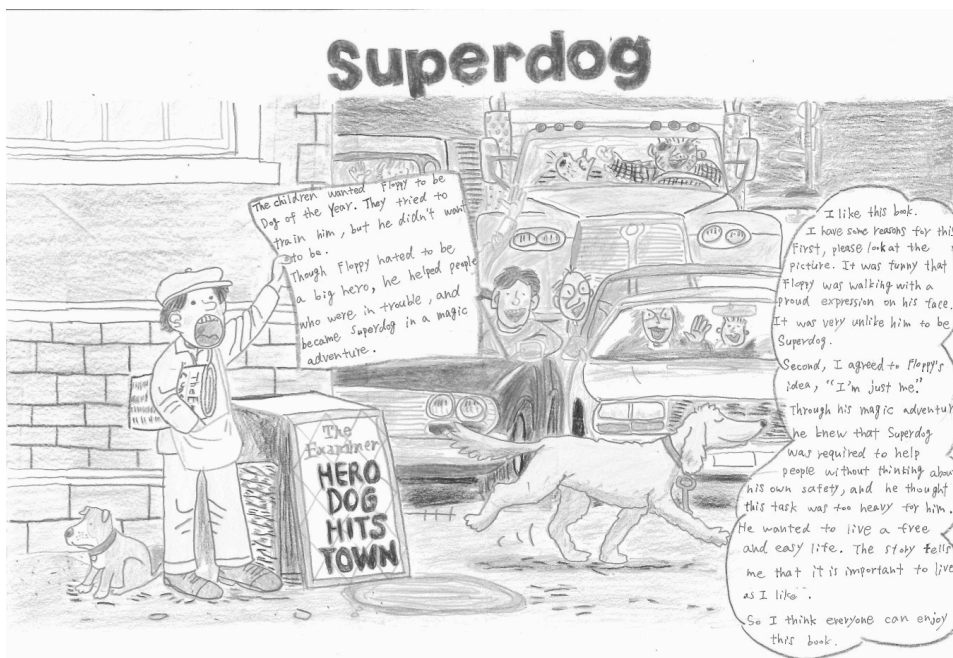 Superdog
The children wanted Floppy to be
Dog of the Year. They tried to
train him, but he didn't want
to be.
Though Floppy hated to be
a big hero, he helped people
who were in trouble, and
became Superdog in a magic
adventure.
The E
The
Examiner
HERO
DOG
HITS
TOWN
I like this book.
I have some reasons for this
First, please look at the
picture. It was funny that
Floppy was walking with a
proud expression on his face.
It was very unlike him to be
Superdog.
Second, I agreed to Floppy's
idea, "I'm just me."
Through his magic adventur
he knew that Superdog
was required to help
people without thinking about
his own safety, and he thought
this task was too heavy for him.
He wanted to live a free
and easy life. The story tells
me that it is important to live
as I like.
So I think everyone can enjoy
this book.